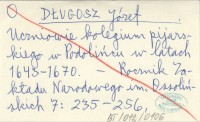 DŁUGOSZ Józef.
Uczniowie kolegium pijar-
skiego w Podolińcu w latach
1643-1670. – Rocznik Za-
kładu Narodowego im. Ossoliń-
skich 7: 235-256,